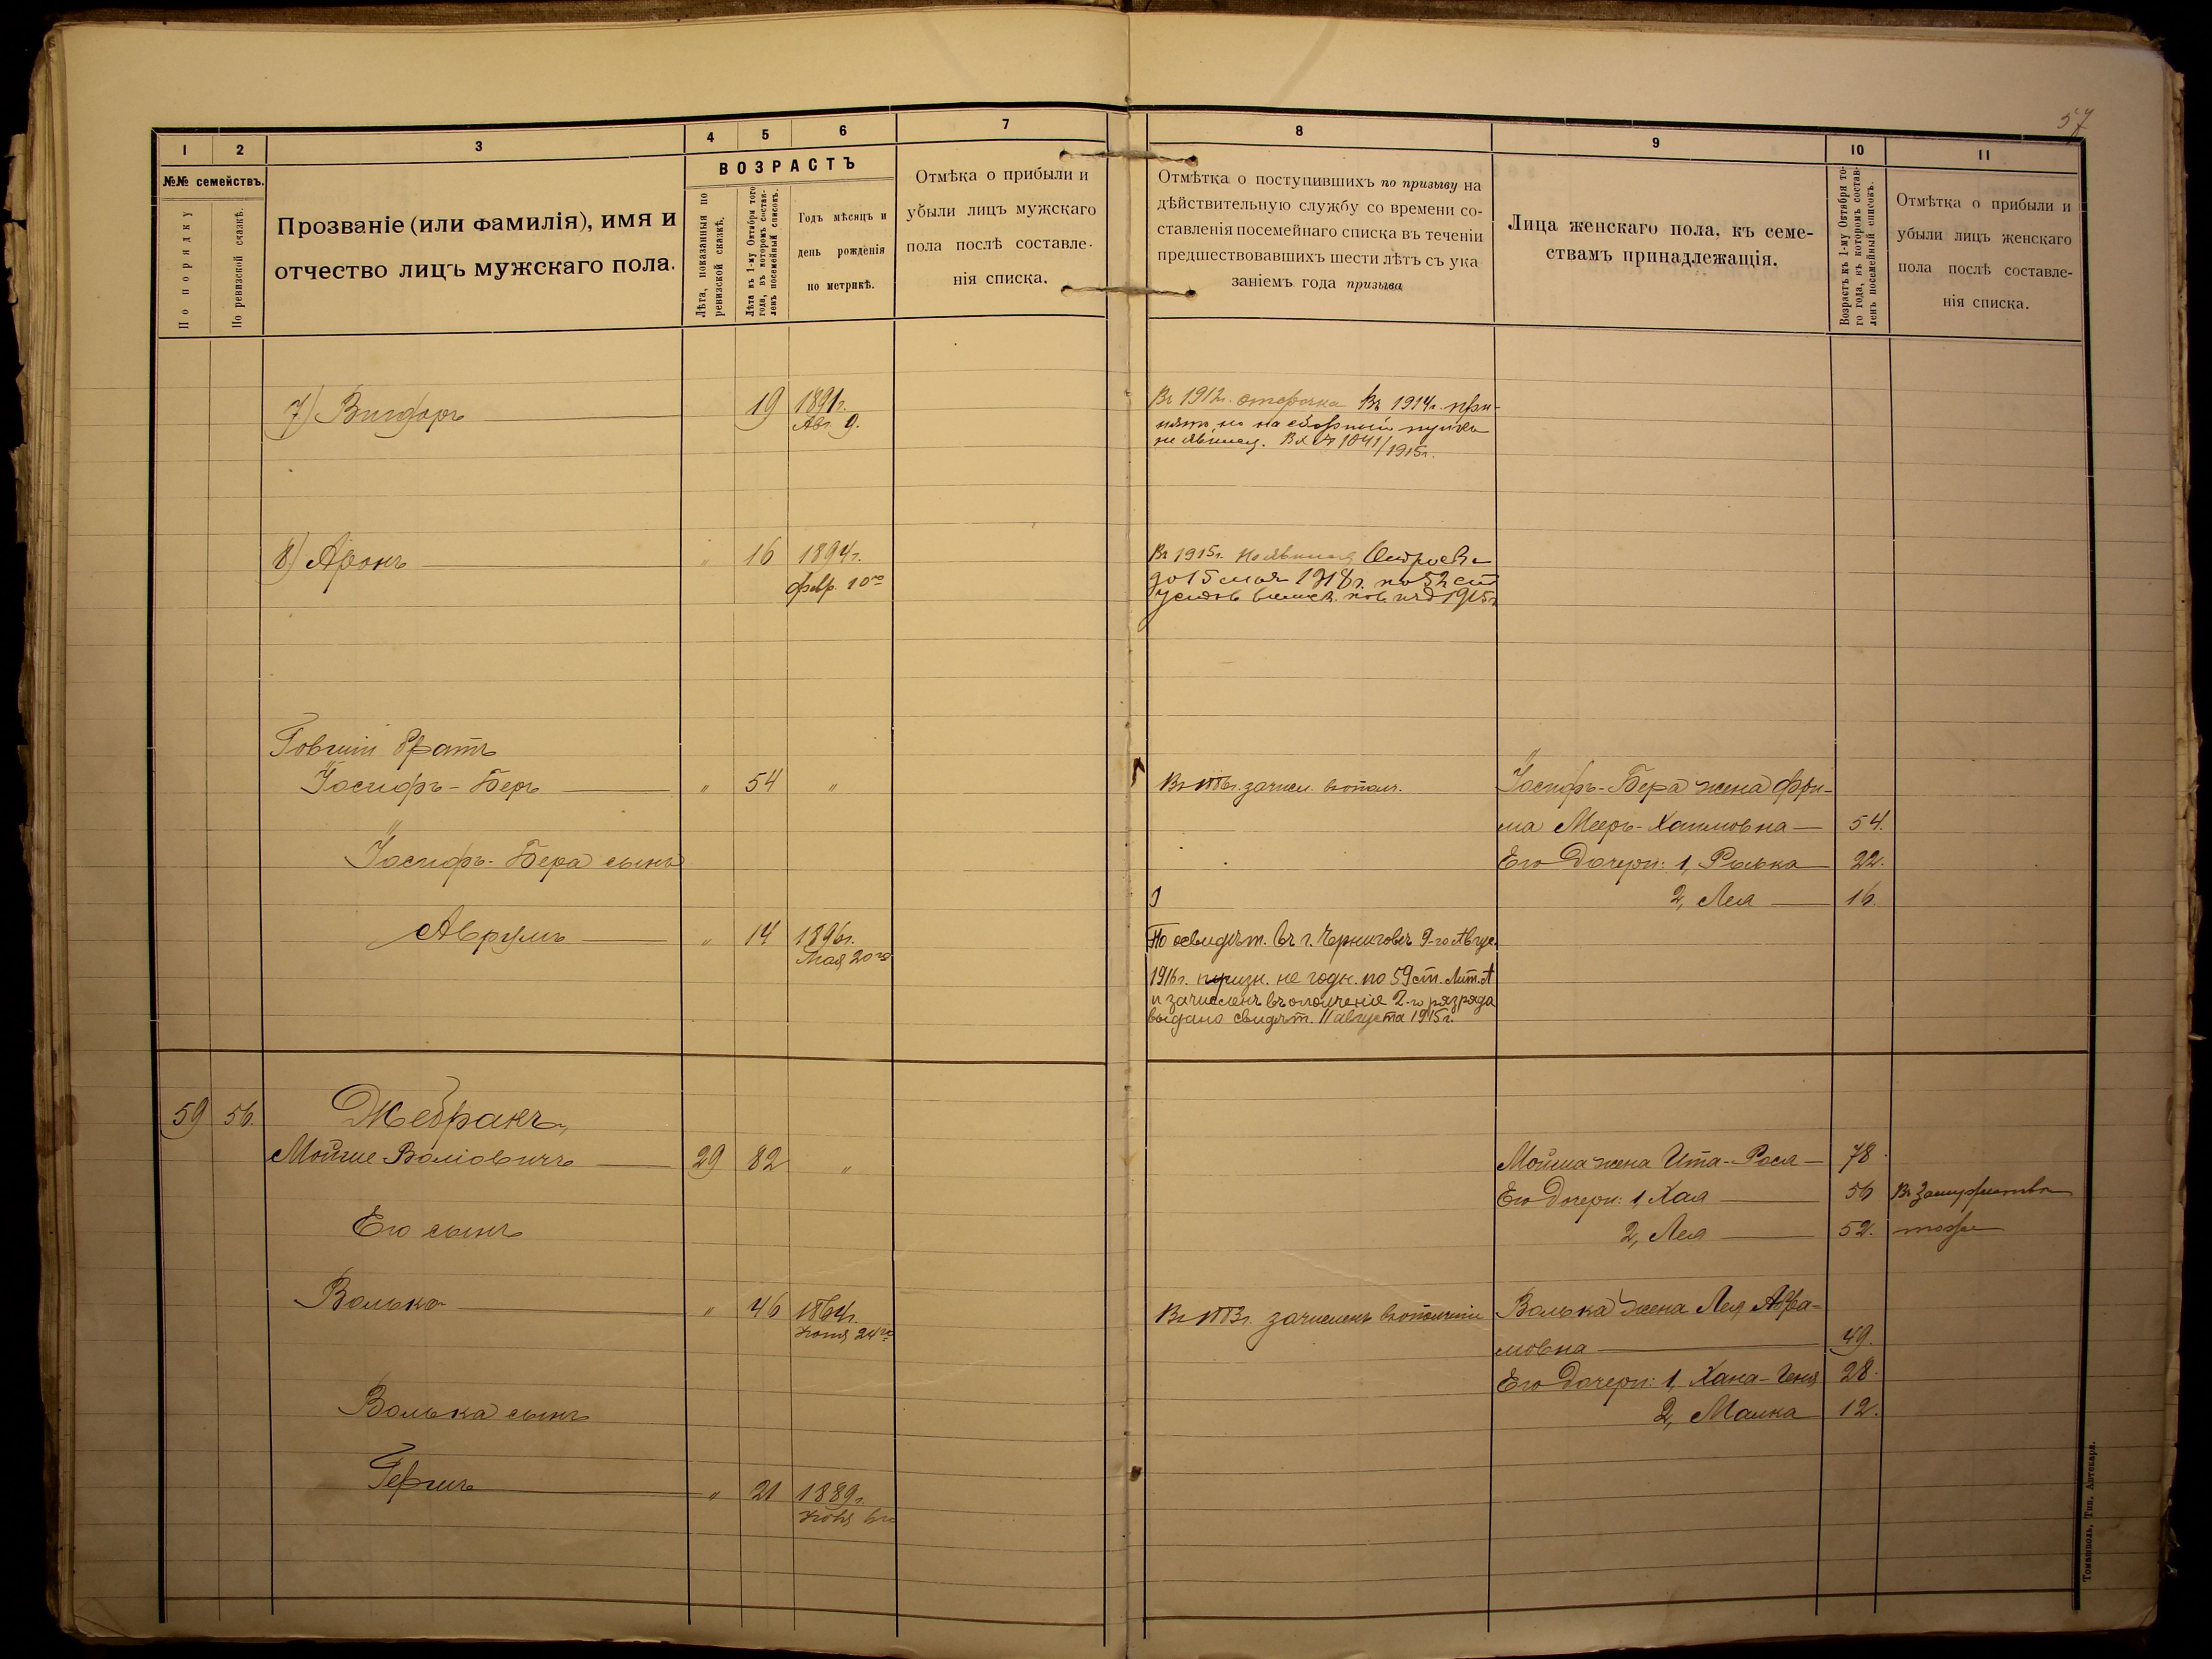 57
1
2
3
4
5
6
7
8
9
10
11
№№ семействъ.
По порядку
По ревизской сказкѣ.
Прозваніе (или фамилія), имя и
отчество лицъ мужскаго пола.
ВОЗРАСТЪ
Лѣта, показанныя по
ревизской сказкѣ.
Лѣта къ 1-му Октября того
года, въ которомъ состав-
ленъ посемейный списокъ.
Годъ мѣсяцъ и
день рожденія
по метрикѣ.
Отмѣка о прибыли и
убыли лицъ мужскаго
пола послѣ составле-
нія списка.
Отмѣтка о поступившихъ по призыву на
дѣйствительную службу со времени со-
ставленія посемейнаго списка въ теченіи
предшествовавшихъ шести лѣтъ съ ука
заніемъ года призыва
Лица женскаго пола, къ семе-
ствамъ принадлежащія.
Возрастъ къ 1-му Октября то-
го года, къ которомъ состав-
ленъ посемейный списокъ.
Отмѣтка о прибыли и
убыли лицъ женскаго
пола послѣ составле-
нія списка.
7) Вигдоръ 19 1891г.
Авг. 9.
Въ 1912г. отсрочка Въ 1914г. при-
нятъ но на сборный пунктъ
не явился. Вх № 1041/1915г.
8) Аронъ " 16 1894г.
февр. 10го
Въ 1915г. не явился
до 15 мая 1918г. по 52 ст
1915г
Говшій братъ
Іосифъ-Беръ " 54 "
зачисл. въ ополч.
Іосифъ-Бера жена Фри-
ма Мееръ-Хаимовна 54.
Іосифъ-Бера сынъ
Его дочери: 1, Рылька 22.
2, Лея 16.
Аврумъ " 14 1896г.
Мая 20го
По освидѣт. въ г. Черниговѣ 9-го Авгус.
1916г. призн. не годн. по 59 ст. Лит. А
и зачисленъ въ ополченіе 2-го разряда
выдано свидѣт. 11 августа 1915г.
59 56. Жебракъ,
Мойше Воліовичъ 29 82 "
Мойша жена Ита-Рося 78
Его дочери: 1, Хая 56 Въ замужествѣ
Его сынъ
2, Лея 52. тоже
Волько " 46 1864г.
Іюня 24го
зачисленъ въ ополченіе
Волька жена Лея Абра-
мовна 49.
Его дочери: 1, Хана-Геня 28.
Волька сынъ
2, Малка 12.
Гершъ " 21 1889г.
Іюня 6го
Томашполь, Тип. Аптекаря.